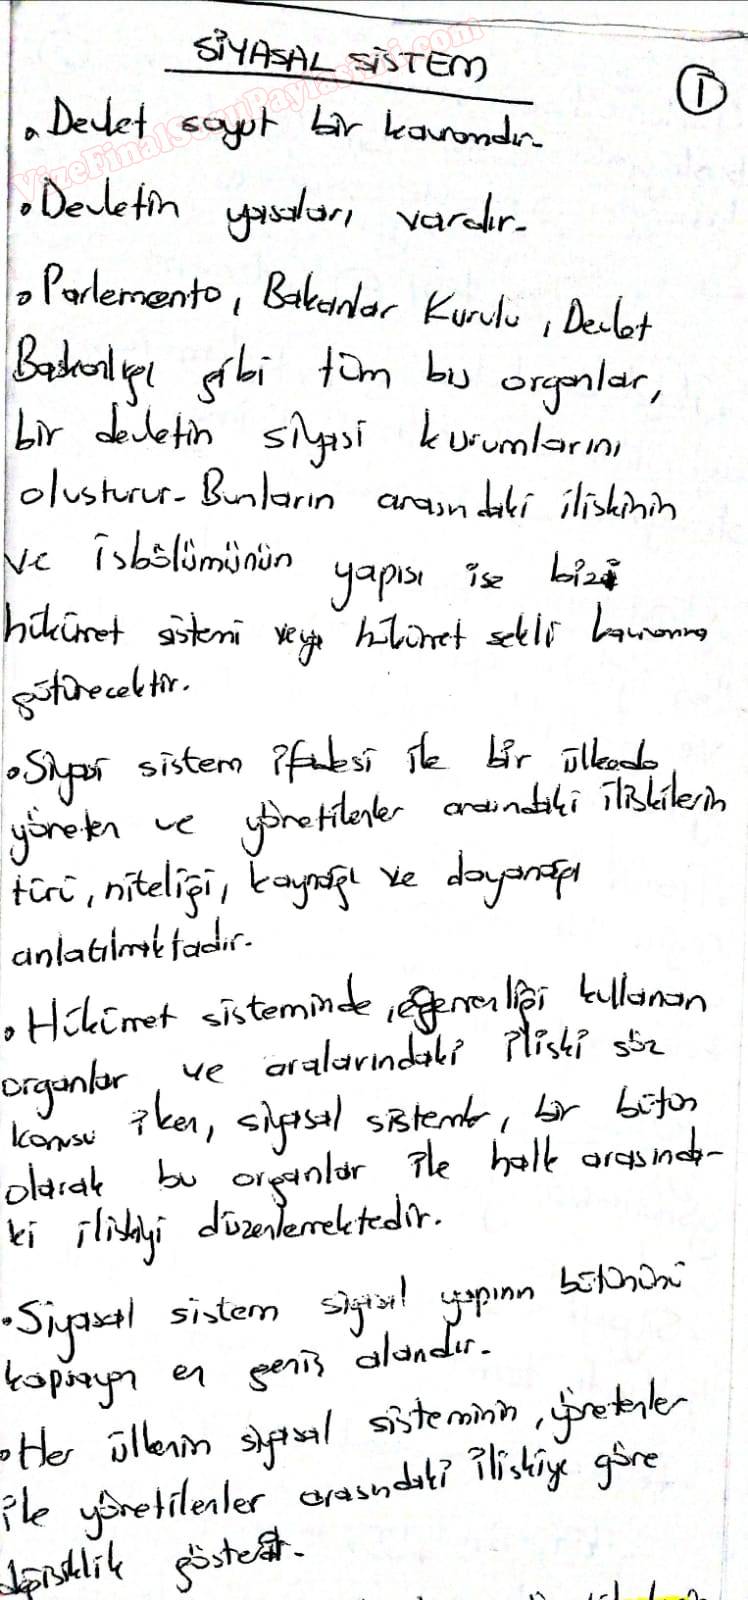 SİYASAL SİSTEM
VizeFinalSoruPaylasimi.com
1
• Devlet soyut bir kavramdır.
• Devletin yasaları vardır.
• Parlemento, Bakanlar Kurulu, Devlet
Başkanlığı gibi tüm bu organlar,
bir devletin siyasi kurumlarını
olusturur. Bunların arasındaki iliskinin
ve isbölümünün yapısı ise bizi
hükümet sistemi veya hükümet sekli kavramına
götürecektir.
• Siyasi sistem ifadesi ile bir ülkede
yöneten ve yönetilenler arasındaki iliskilerin
türü, niteliği, kaynağı ve dayanağı
anlatılmaktadır.
• Hükümet sisteminde, egemenliği kullanan
organlar ve aralarındaki iliski söz
konusu iken, siyasal sistemde, bir bütün
olarak bu organlar ile halk arasında-
ki iliskiyi düzenlemektedir.
• Siyasal sistem siyasal yapının bütününü
kapsayan en geniş alandır.
• Her ülkenin siyasal sisteminin, yönetenler
ile yönetilenler arasındaki iliskiye göre
değisiklik gösterir.